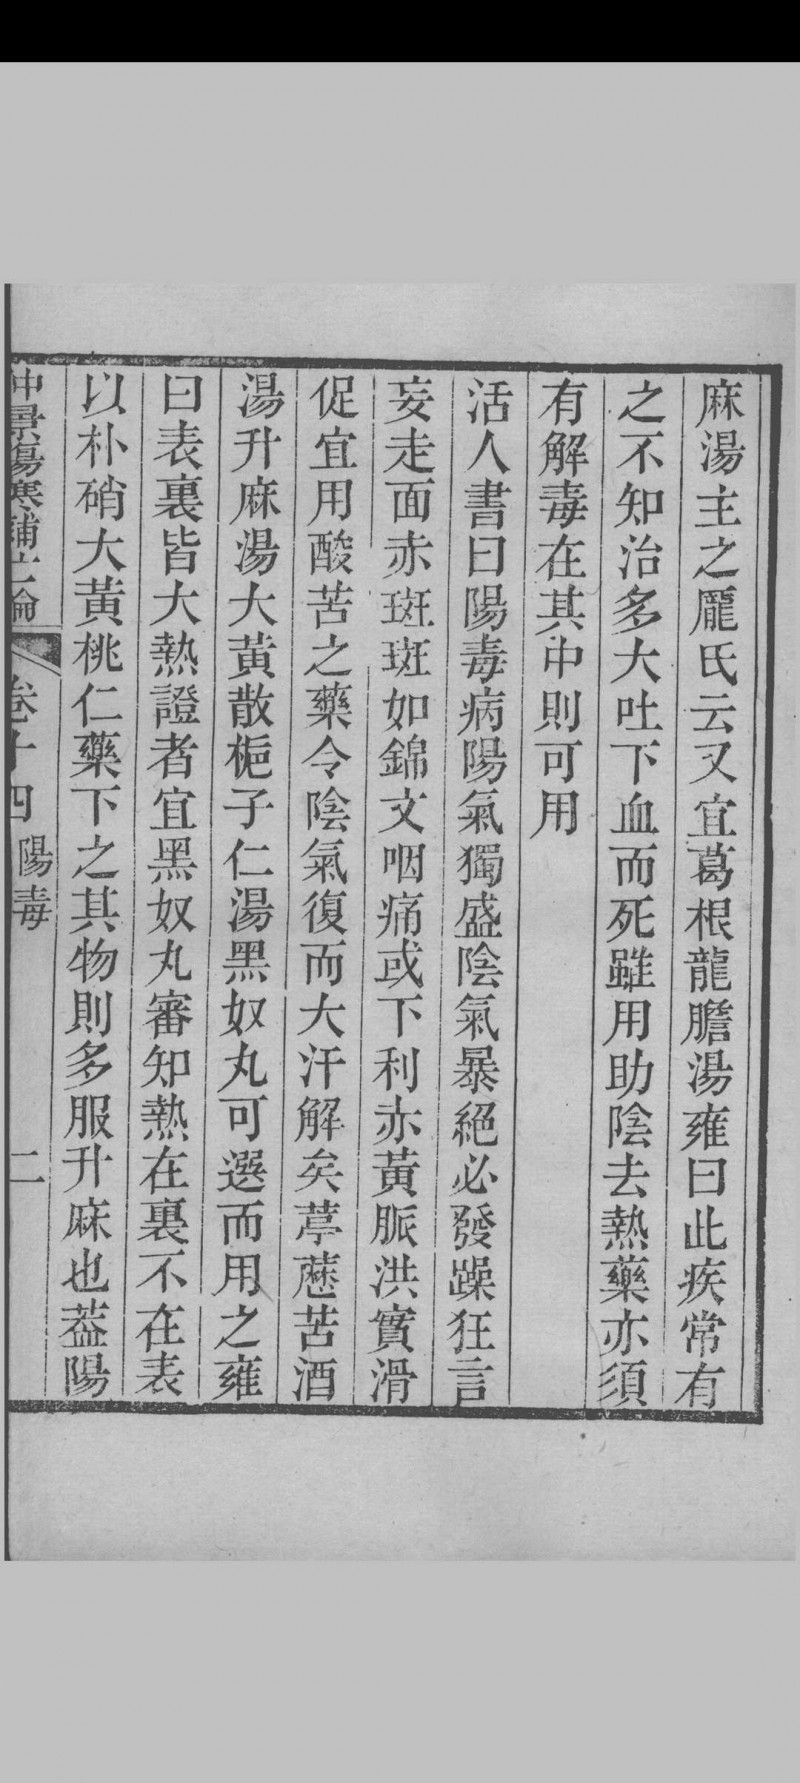 麻湯主之龐氏云又宜葛根龍膽湯雍曰此疾常有
之不知治多大吐下血而死雖用助陰去熱藥亦須
有解毒在其中則可用
活人書曰陽毒病陽氣獨盛陰氣暴絕必發躁狂言
妄走面赤斑斑如錦文咽痛或下利赤黃脈洪實滑
促宜用酸苦之藥令陰氣復而大汗解矣葶藶苦酒
湯升麻湯大黃散梔子仁湯黑奴丸可選而用之雍
曰表裏皆大熱證者宜黑奴丸審知熱在裏不在表
以朴硝大黃桃仁藥下之其物則多服升麻也葢陽
仲景傷寒補亡論 卷十四 陽毒 二